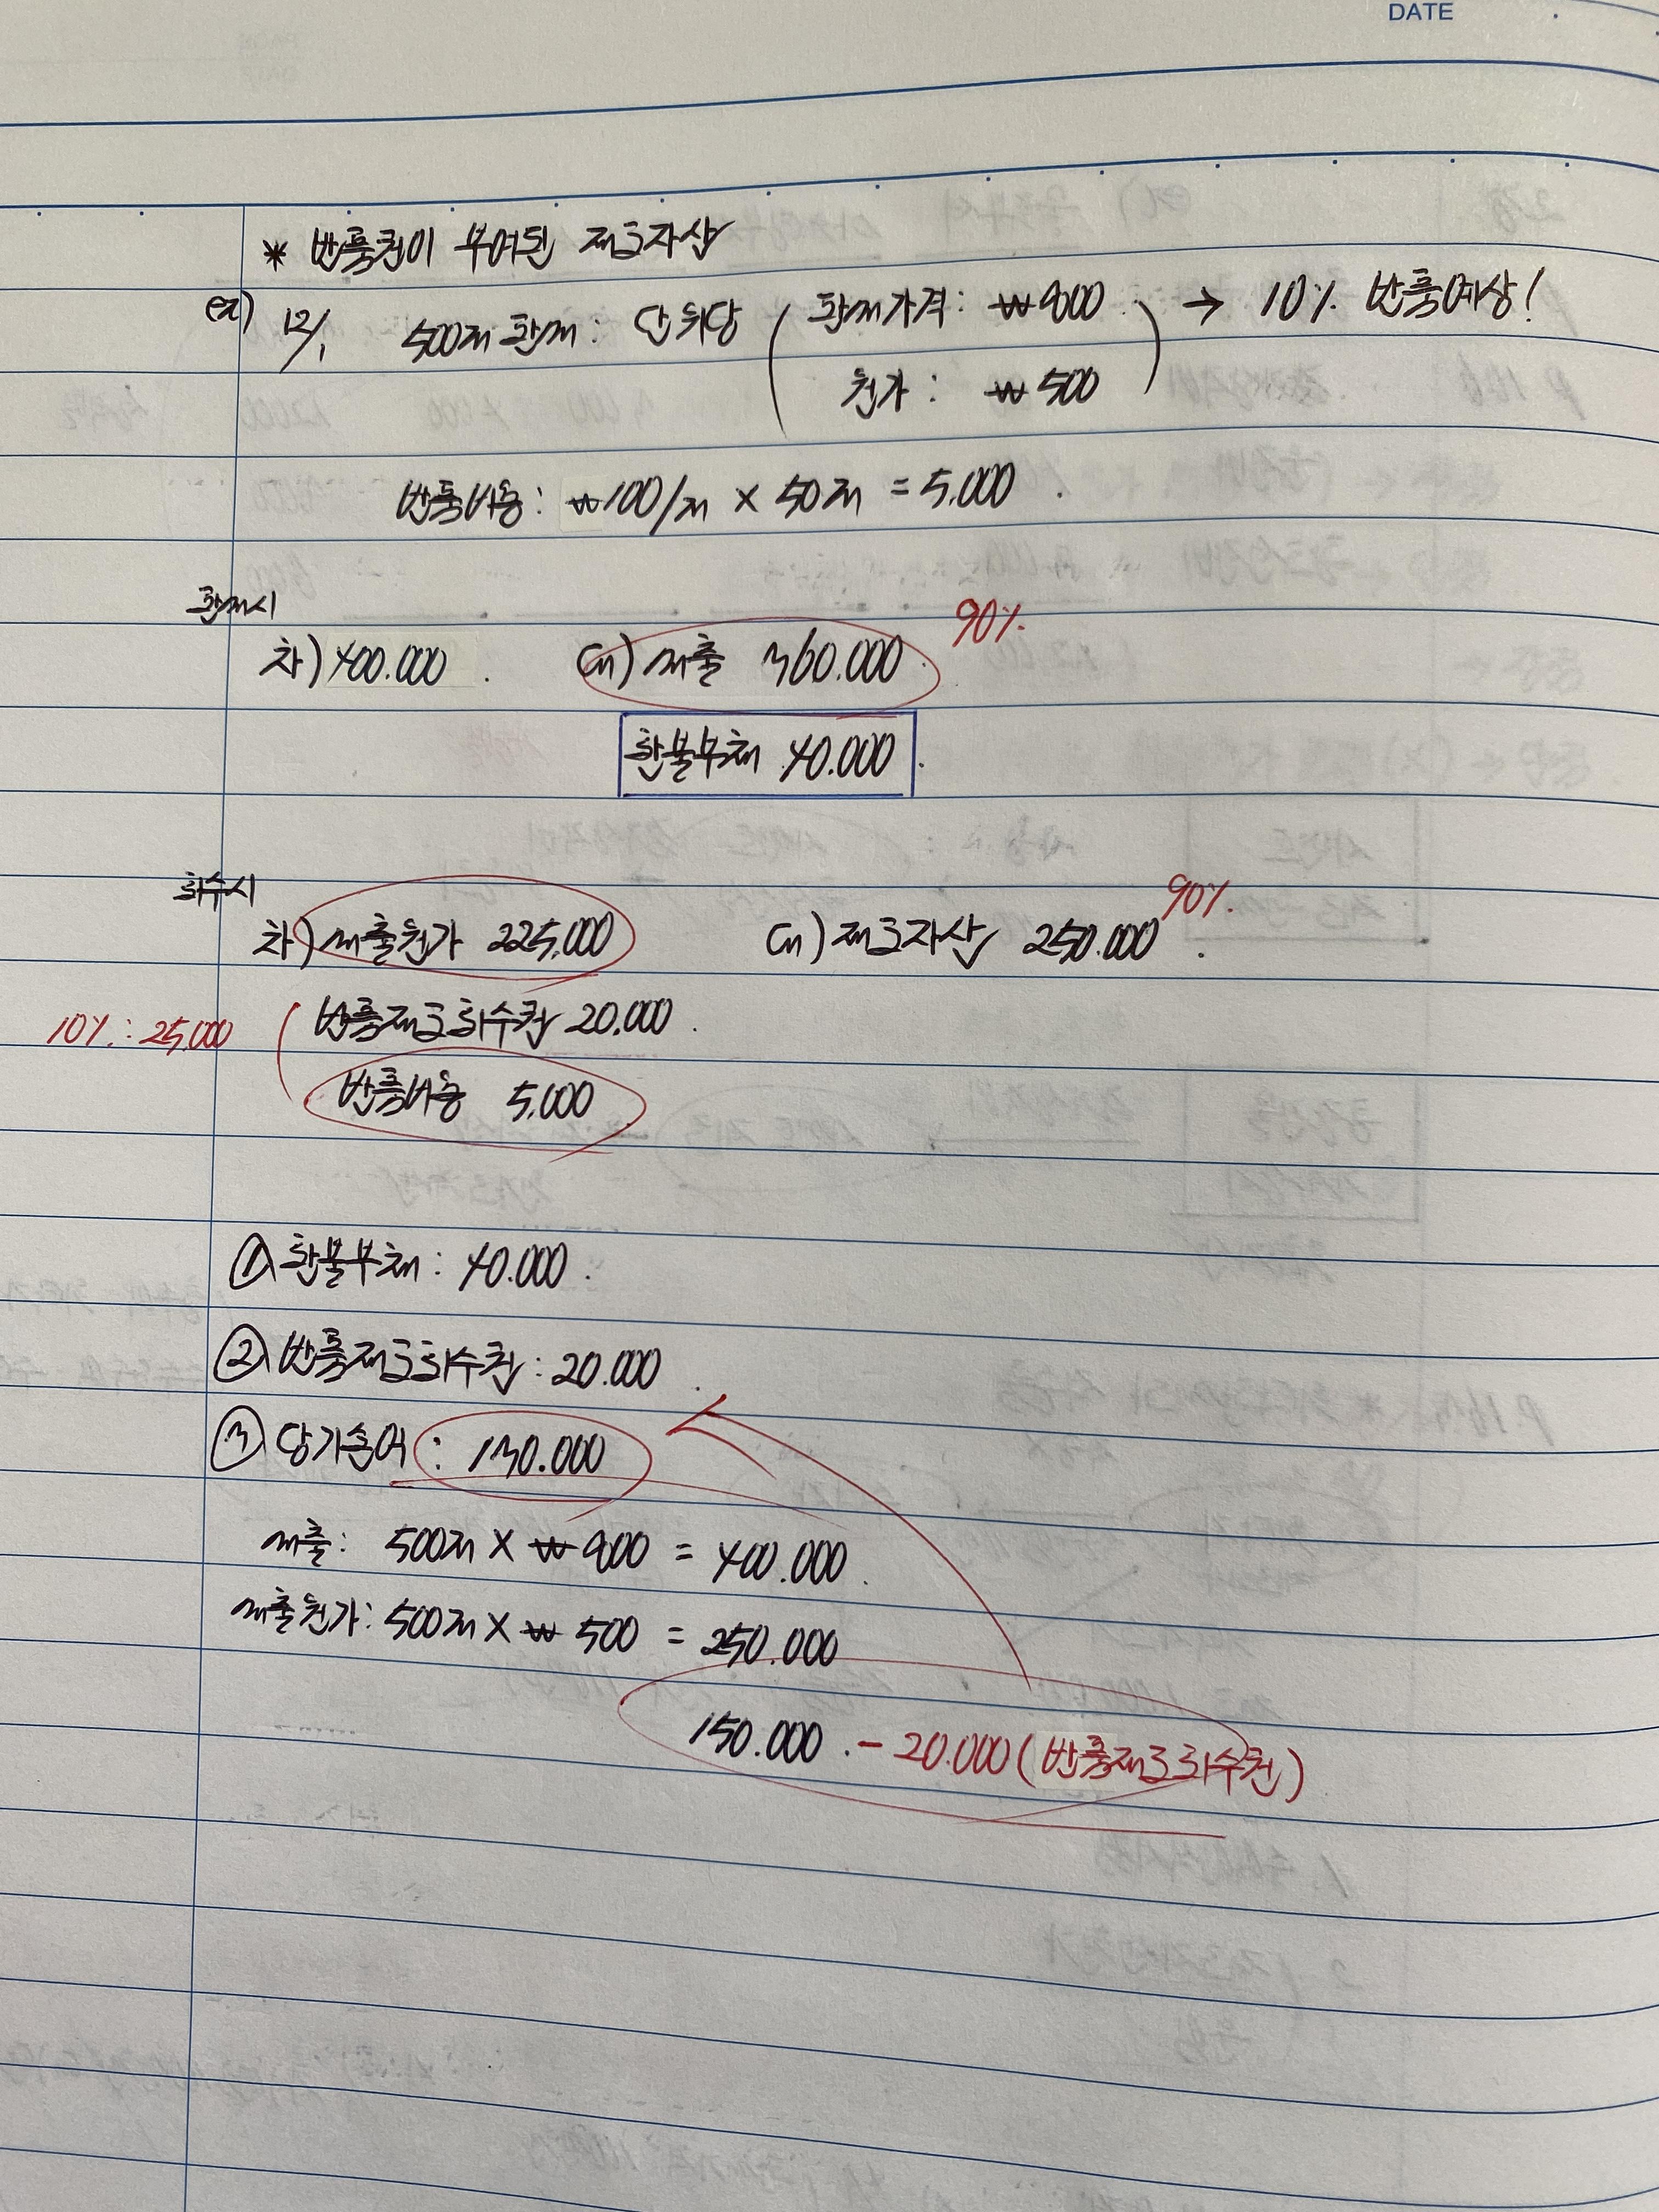 DATE
* 반품권이 부여된 재고자산
ex) 12/1 500개 판매 : 단위당 ( 판매가격 : ₩800 ) → 10% 반품예상!
원가 : ₩500
반품비용 : ₩100/개 × 50개 = 5,000
판매시
90%
차) 400.000 대) 매출 360.000
환불부채 40.000
회수시
90%
차) 매출원가 225,000 대) 재고자산 250.000
10% : 25,000 ( 반품재고회수권 20.000
반품비용 5,000
① 환불부채 : 40.000
② 반품재고회수권 : 20.000
③ 당기손익 : 130.000
매출 : 500개 × ₩800 = 400.000
매출원가 : 500개 × ₩500 = 250.000
150.000 - 20.000 (반품재고회수권)